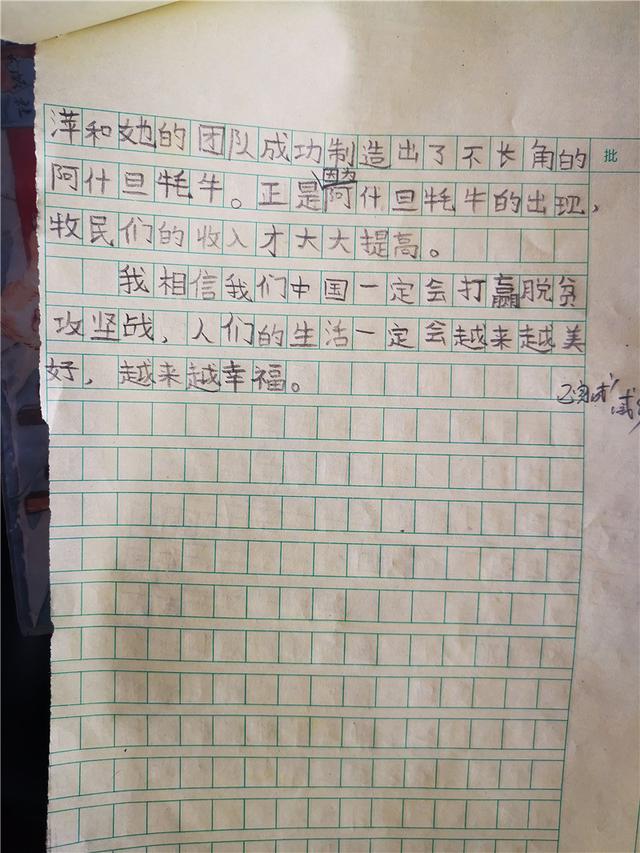 萍和她的团队成功制造出了不长角的
阿什旦牦牛。正是因为阿什旦牦牛的出现，
牧民们的收入才大大提高。
我相信我们中国一定会打赢脱贫
攻坚战，人们的生活一定会越来越美
好，越来越幸福。
批